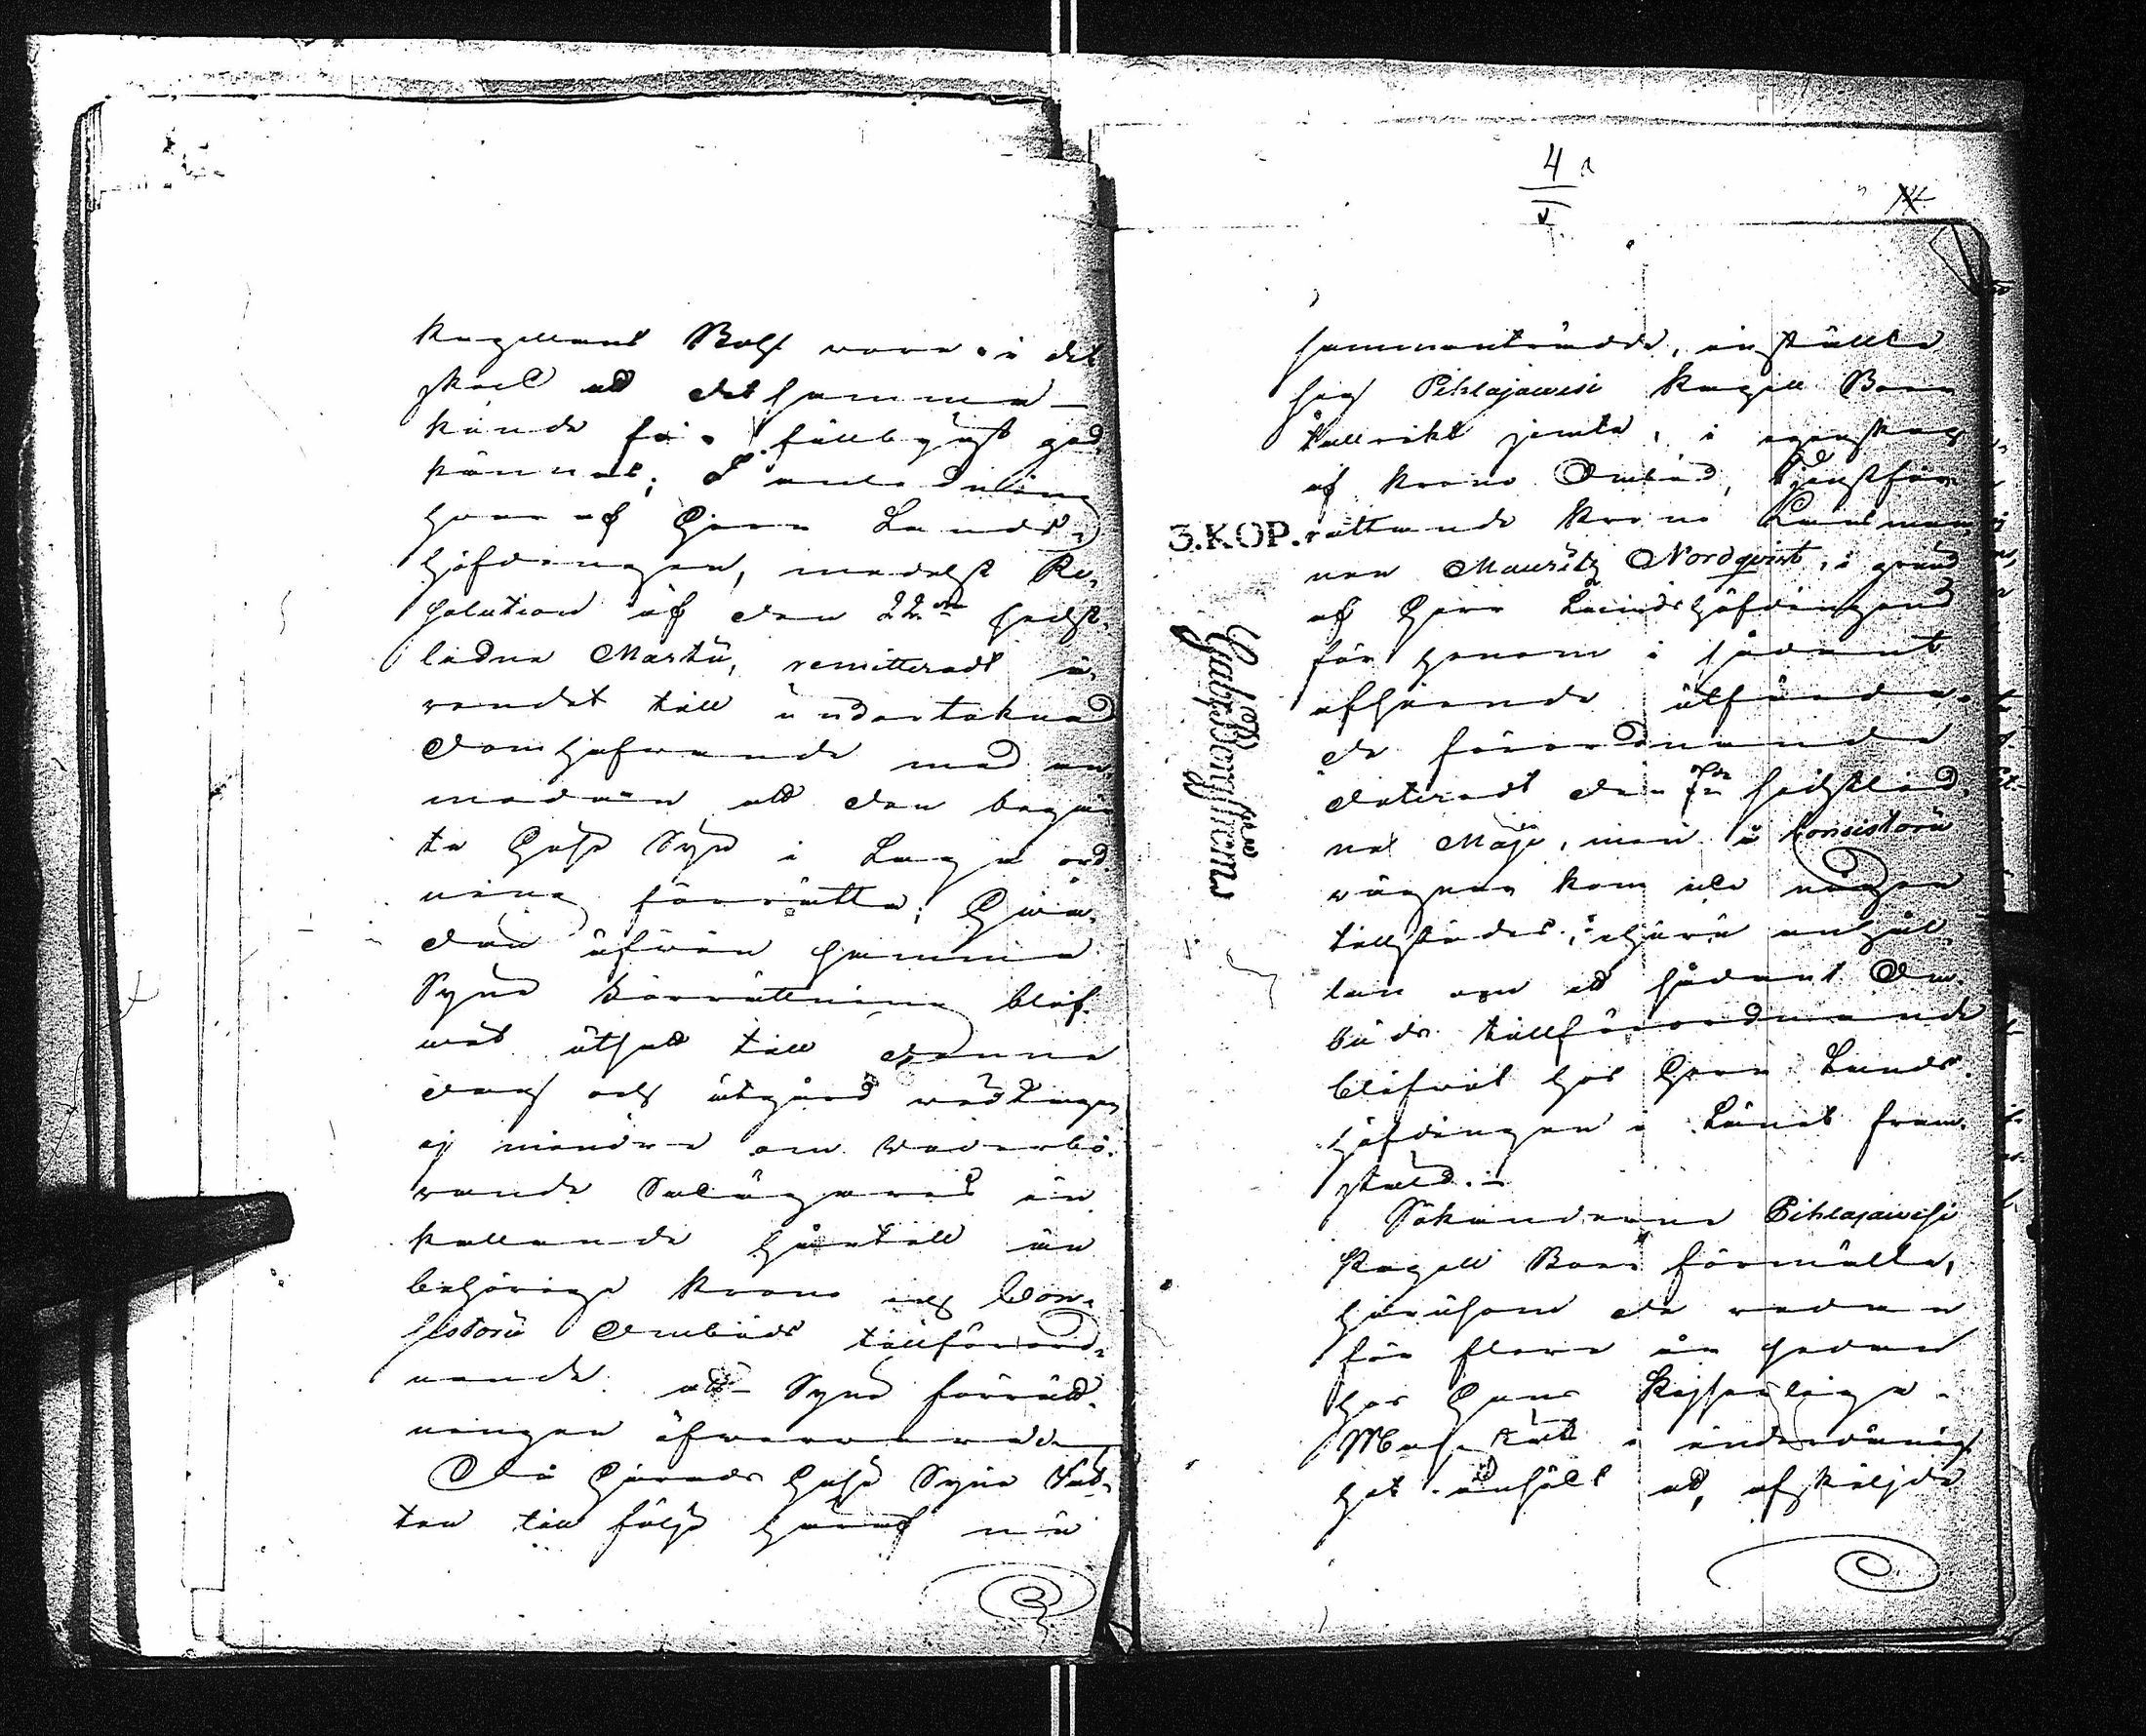 Kapellets Bohl vara i det
skick att detsamma
kunde få fullbygdt god-
kännas; I anledning
hvaraf Herr Lands-
höfdingen, medelst Re-
solution af den 22dra sedst-
ledne Martii, remitteradt ä-
rendet till undertecknad
Domhafvande med an-
modan att den begär-
ta Husesyn i Laga ord-
ning förrätta; Hvar-
den äfven samma
Syne Förrättning blif-
vit utsatt till denna
dag och åtgärd vidtagen
ej mindre om vederbö-
rande Sakägares in-
kallande härtill än
behörige Krono och Con-
sistorii Ombuds tillförord-
nande att Syne förrätt-
ningen öfvervara
Då Härads Husesyne Rät-
ten till följe häraf nu
4
3.KOP.
sammanträdde, inställte
sig Pihlajawesi Kapell Boer
talrikt jemte, i egenskap
af Krono Ombud, Tjenstför-
rättande Krono Länsman-
nen Mauritz Nordqvist, i grund
af Herr Landshöfdingens
för honom i sådant
afseende utfärda-
de förordnande
dateradt den sedstled-
ne Maji, men å Consistorii
vägnar kom icke någon
tillstädes, ehuru anhål-
lan om ett sådant Om-
buds tillförordnande
blifvit hos Herr Lands-
höfdingen i Länet fram-
stäld.
Sökanderne Pihlajawesi
Kapell Boer förmälte,
hurusom de redan
för flere år sedan
hos Hans Kejserliga
Maj:tät i underdånig-
het anhållit att, afskiljde